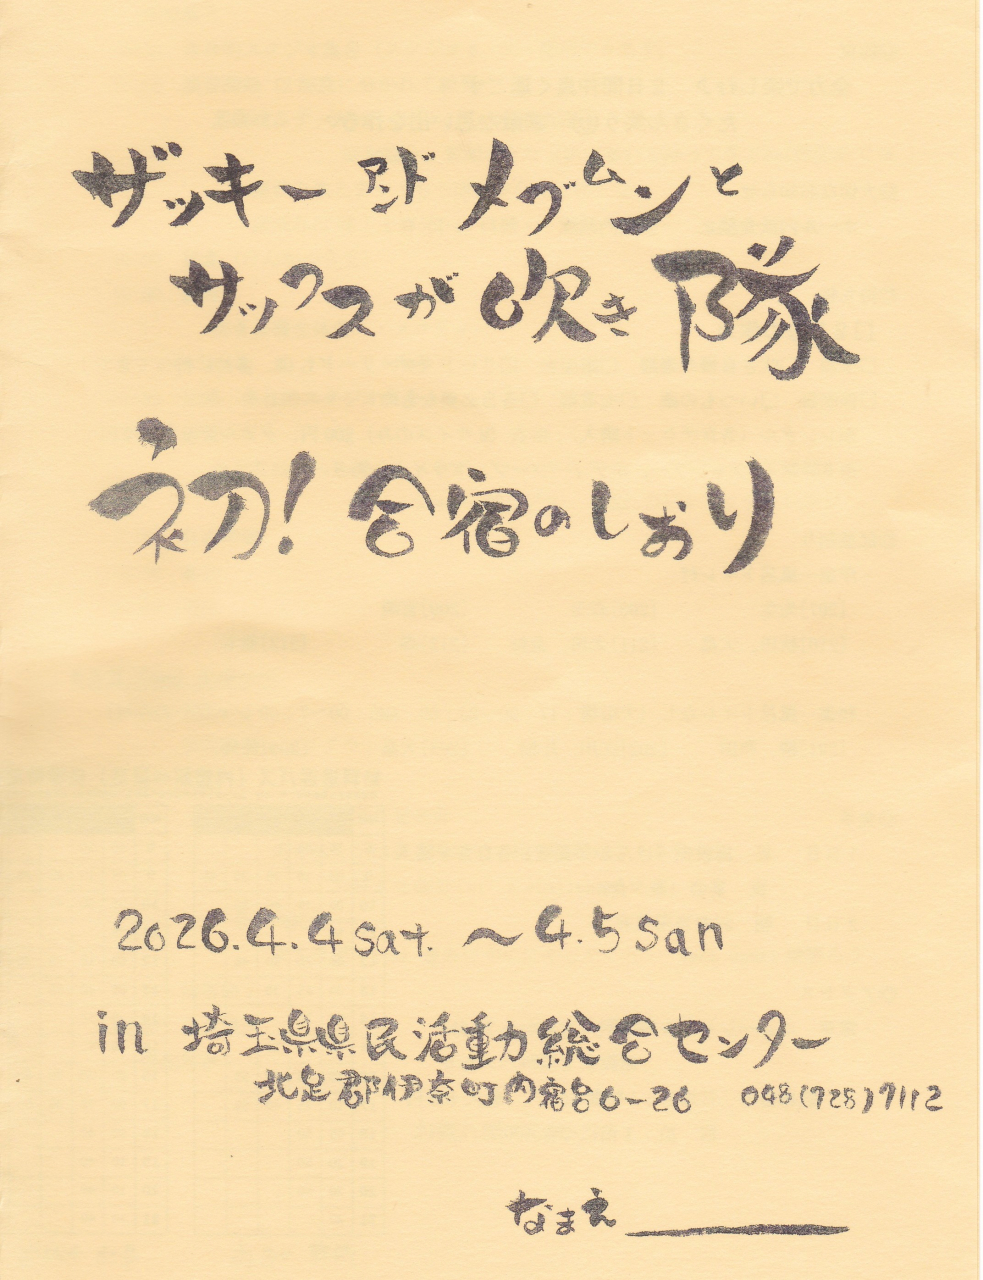 ザッキー アンド メブムンと
サックスが吹き隊
初！合宿のしおり
2026.4.4 sat. ～ 4.5 san
in 埼玉県県民活動総合センター
北足郡伊奈町内宿台6-26 048(728)7112
なまえ